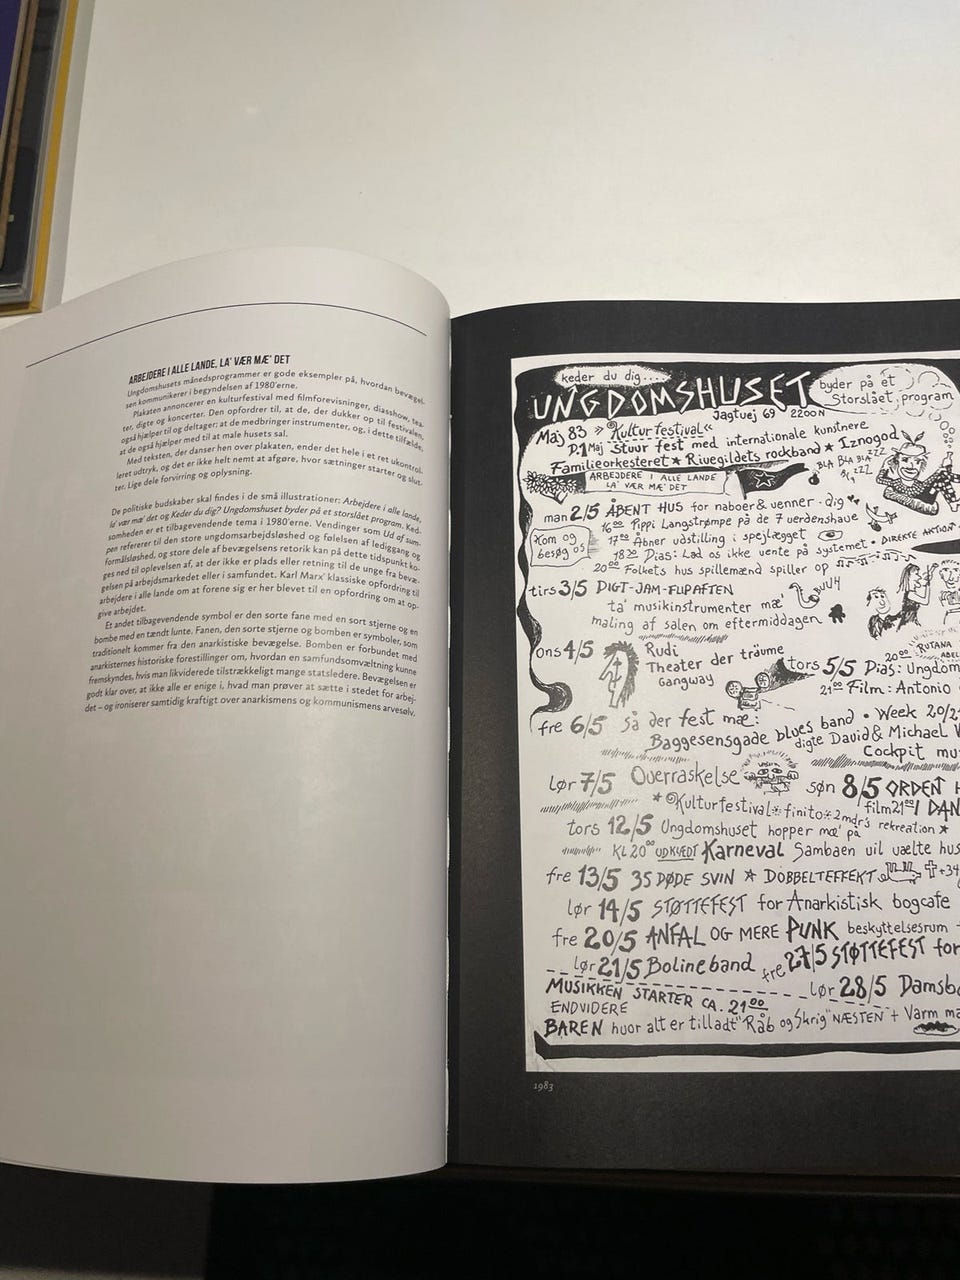 ARBEJDERE I ALLE LANDE, LA' VÆR MÆ' DET
Ungdomshusets månedsprogrammer er gode eksempler på, hvordan bevægel-
sen kommunikerer i begyndelsen af 1980'erne.
Plakaten annoncerer en kulturfestival med filmforevisninger, diasshow, tea-
ter, digte og koncerter. Den opfordrer til, at de, der dukker op til festivalen,
også hjælper til og deltager; at de medbringer instrumenter, og, i dette tilfælde,
at de også hjælper med til at male husets sal.
Med teksten, der danser hen over plakaten, ender det hele i et ret ukontrol-
leret udtryk, og det er ikke helt nemt at afgøre, hvor sætninger starter og slut-
ter. Lige dele forvirring og oplysning.
De politiske budskaber skal findes i de små illustrationer: Arbejdere i alle lande,
la' vær mæ' det og Keder du dig? Ungdomshuset byder på et storslået program. Ked-
somheden er et tilbagevendende tema i 1980'erne. Vendinger som Ud af sum-
pen refererer til den store ungdomsarbejdsløshed og følelsen af lediggang og
formålsløshed, og store dele af bevægelsens retorik kan på dette tidspunkt ko-
ges ned til oplevelsen af, at der ikke er plads eller retning til de unge fra bevæ-
gelsen på arbejdsmarkedet eller i samfundet. Karl Marx' klassiske opfordring til
arbejdere i alle lande om at forene sig er her blevet til en opfordring om at op-
give arbejdet.
Et andet tilbagevendende symbol er den sorte fane med en sort stjerne og en
bombe med en tændt lunte. Fanen, den sorte stjerne og bomben er symboler, som
traditionelt kommer fra den anarkistiske bevægelse. Bomben er forbundet med
anarkisternes historiske forestillinger om, hvordan en samfundsomvæltning kunne
fremskyndes, hvis man likviderede tilstrækkeligt mange statsledere. Bevægelsen er
godt klar over, at ikke alle er enige i, hvad man prøver at sætte i stedet for arbej-
det – og ironiserer samtidig kraftigt over anarkismens og kommunismens arvesølv.
keder du dig....
UNGDOMSHUSET
byder på et
Storslået program
Jagtvej 69 2200 N
Maj 83 » Kulturfestival «
D.1 Maj Stuur fest med internationale kunstnere
Familieorkesteret ★ Rivegildets rockband ★ Iznogod
BLA BLA BLA ZZZ
ARBEJDERE I ALLE LANDE
LA' VÆR MÆ' DET
man 2/5 ÅBENT HUS for naboer & venner - dig
16 00 Pippi Langstrømpe på de 7 verdenshave
Kom og
besøg os
17 00 Åbner udstilling i spejlægget
18 30 Dias: Lad os ikke vente på systemet • DIREKTE AKTION
20 00 Folkets hus spillemænd spiller op
tirs 3/5 DIGT-JAM-FLIPAFTEN
ta' musikinstrumenter mæ'
maling af salen om eftermiddagen
BUUH
ons 4/5 Rudi
Theater der träume
Gangway
20 00 RUTANA
tors 5/5 Dias: Ungdom
21 00 Film: Antonio
fre 6/5 så der fest mæ:
Baggesensgade blues band • Week 20/21
digte David & Michael
Cockpit mu
lør 7/5 Overraskelse
søn 8/5 ORDEN
film 21 00 I DAN
* Kulturfestival * finito * 2 mdr's rekreation *
tors 12/5 Ungdomshuset hopper mæ' på
Kl 20 00 UDKLÆDT Karneval Sambaen vil vælte hus
fre 13/5 35 DØDE SVIN ★ DOBBELTEFFEKT +34
lør 14/5 STØTTEFEST for Anarkistisk bogcafe
fre 20/5 ANFAL OG MERE PUNK beskyttelsesrum
lør 21/5 Boline band
fre 27/5 STØTTEFEST for
lør 28/5 Damsbo
MUSIKKEN STARTER CA. 21 00
ENDVIDERE
BAREN hvor alt er tilladt "Råb og Skrig" NÆSTEN + Varm ma
1983